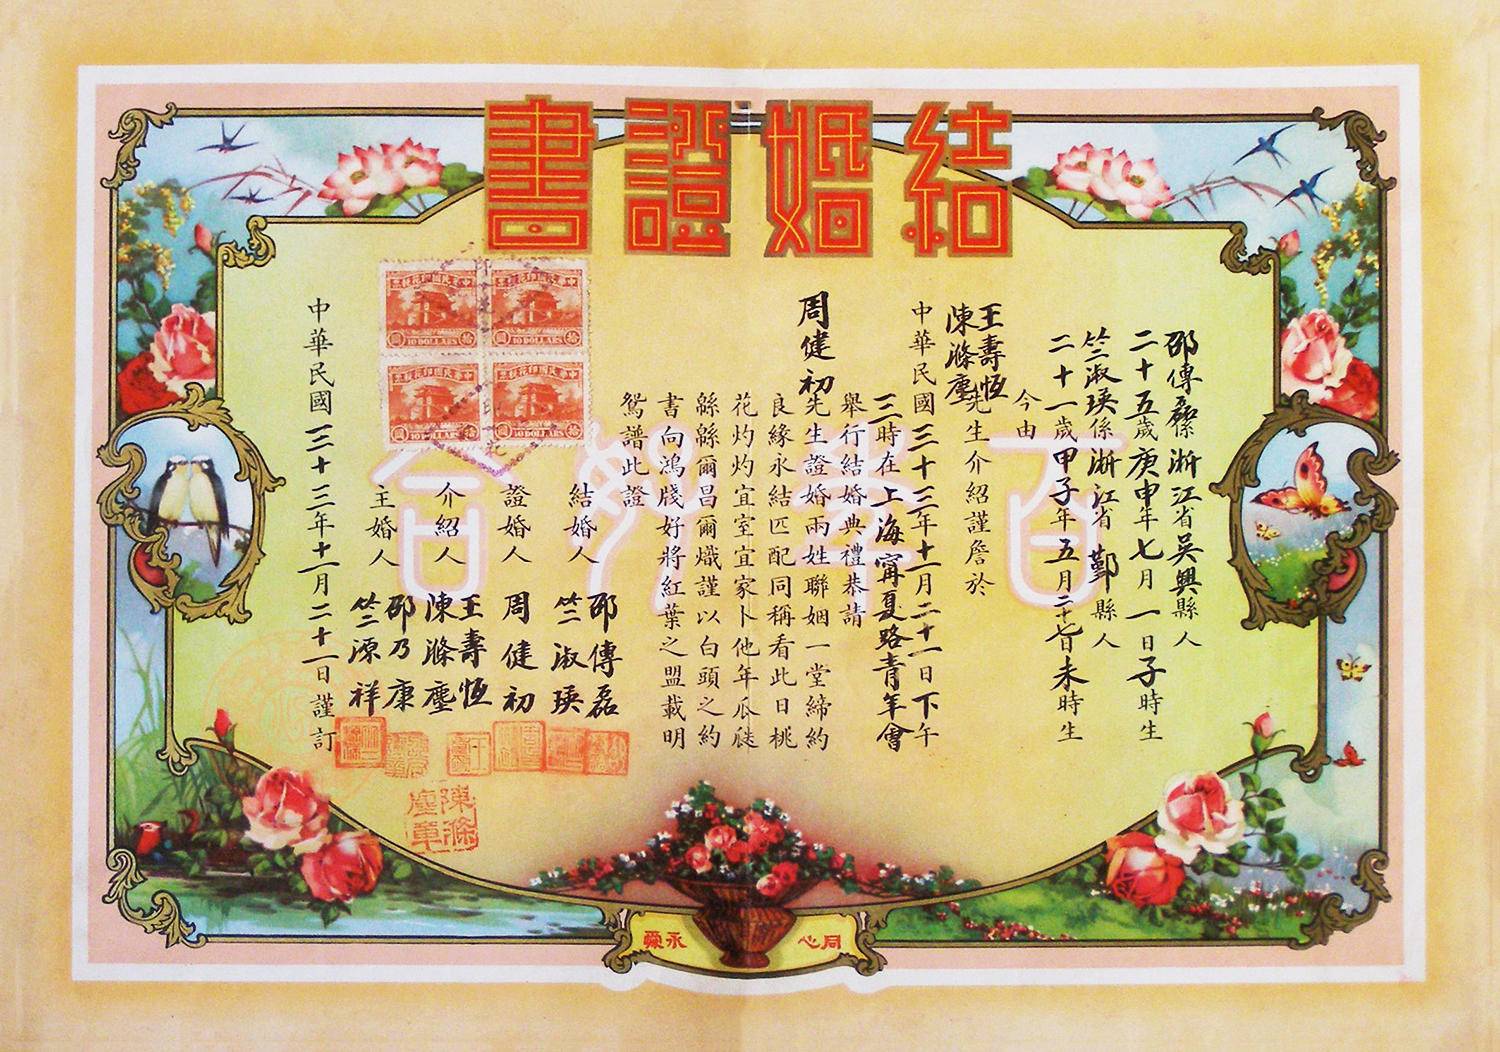 結婚證書
邵傳磊係浙江省吳興縣人
二十五歲庚申年七月一日子時生
竺淑瑛係浙江省鄞縣人
二十一歲甲子年五月二十七日未時生
今由
王壽恆
陳滌塵
先生介紹謹詹於
中華民國三十三年十一月二十一日下午
三時在上海寗夏路青年會
舉行結婚典禮恭請
周健初先生證婚兩姓聯姻一堂締約
良緣永結匹配同稱看此日桃
花灼灼宜室宜家卜他年瓜瓞
緜緜爾昌爾熾謹以白頭之約
書向鴻牋好將紅葉之盟載明
鴛譜此證
結婚人 邵傳磊
竺淑瑛
證婚人 周健初
介紹人 王壽恆
陳滌塵
主婚人 邵乃康
竺源祥
中華民國三十三年十一月二十一日謹訂
中華民國印花稅票
拾 10 DOLLARS 圓
中華民國印花稅票
拾 10 DOLLARS 圓
中華民國印花稅票
拾 10 DOLLARS 圓
中華民國印花稅票
拾 10 DOLLARS 圓
百年好合
陳滌塵章
同心 永愛